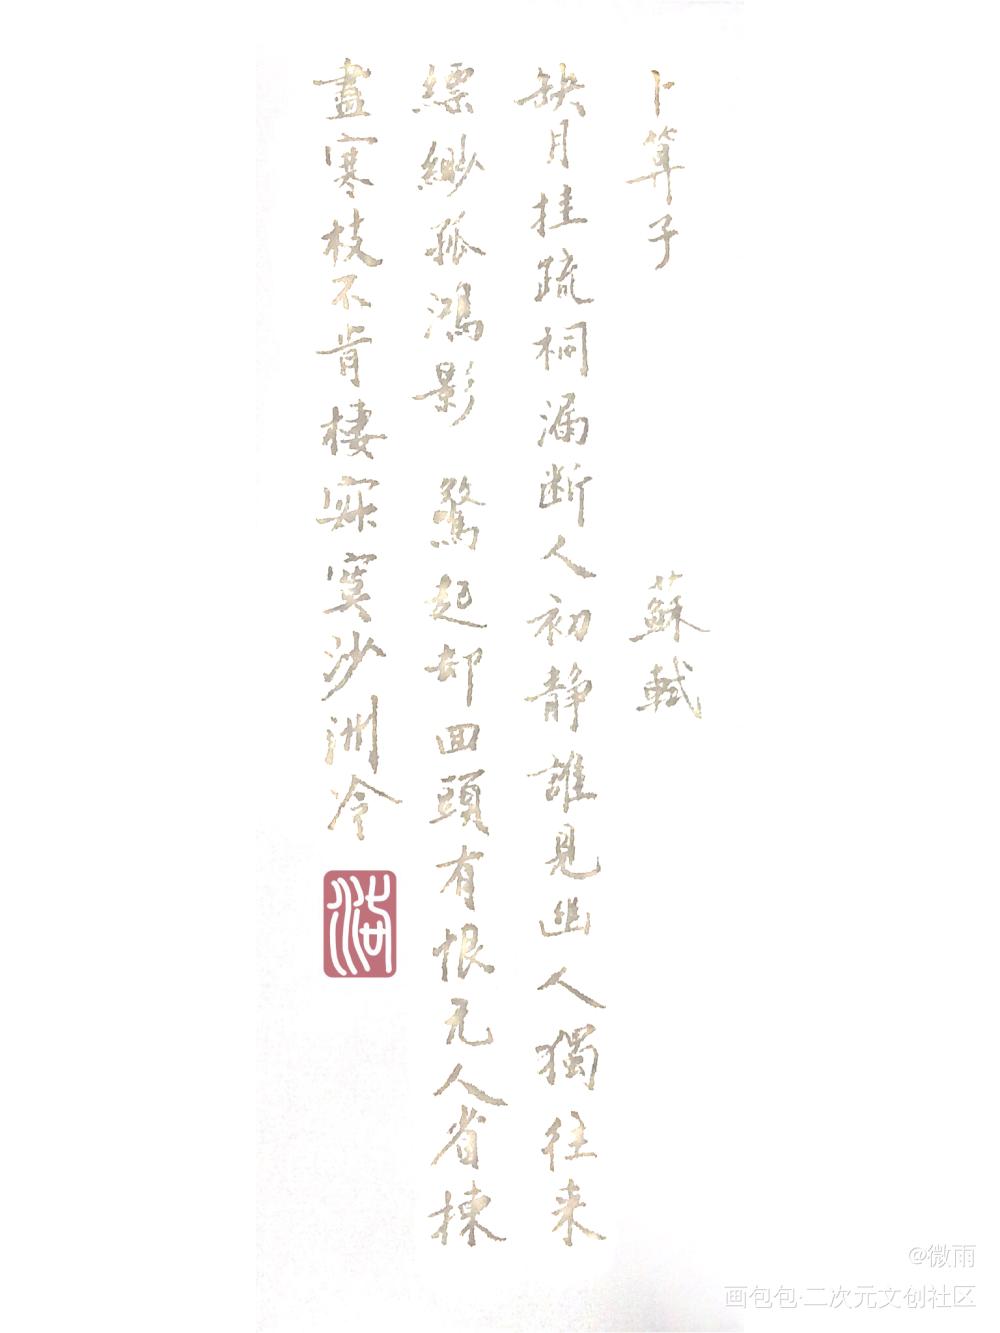 卜算子 蘇軾
缺月挂疏桐漏断人初静誰見幽人獨往来
縹緲孤鴻影 驚起却回頭有恨无人省揀
盡寒枝不肯棲寂寞沙洲冷
@微雨
画包包·二次元文创社区